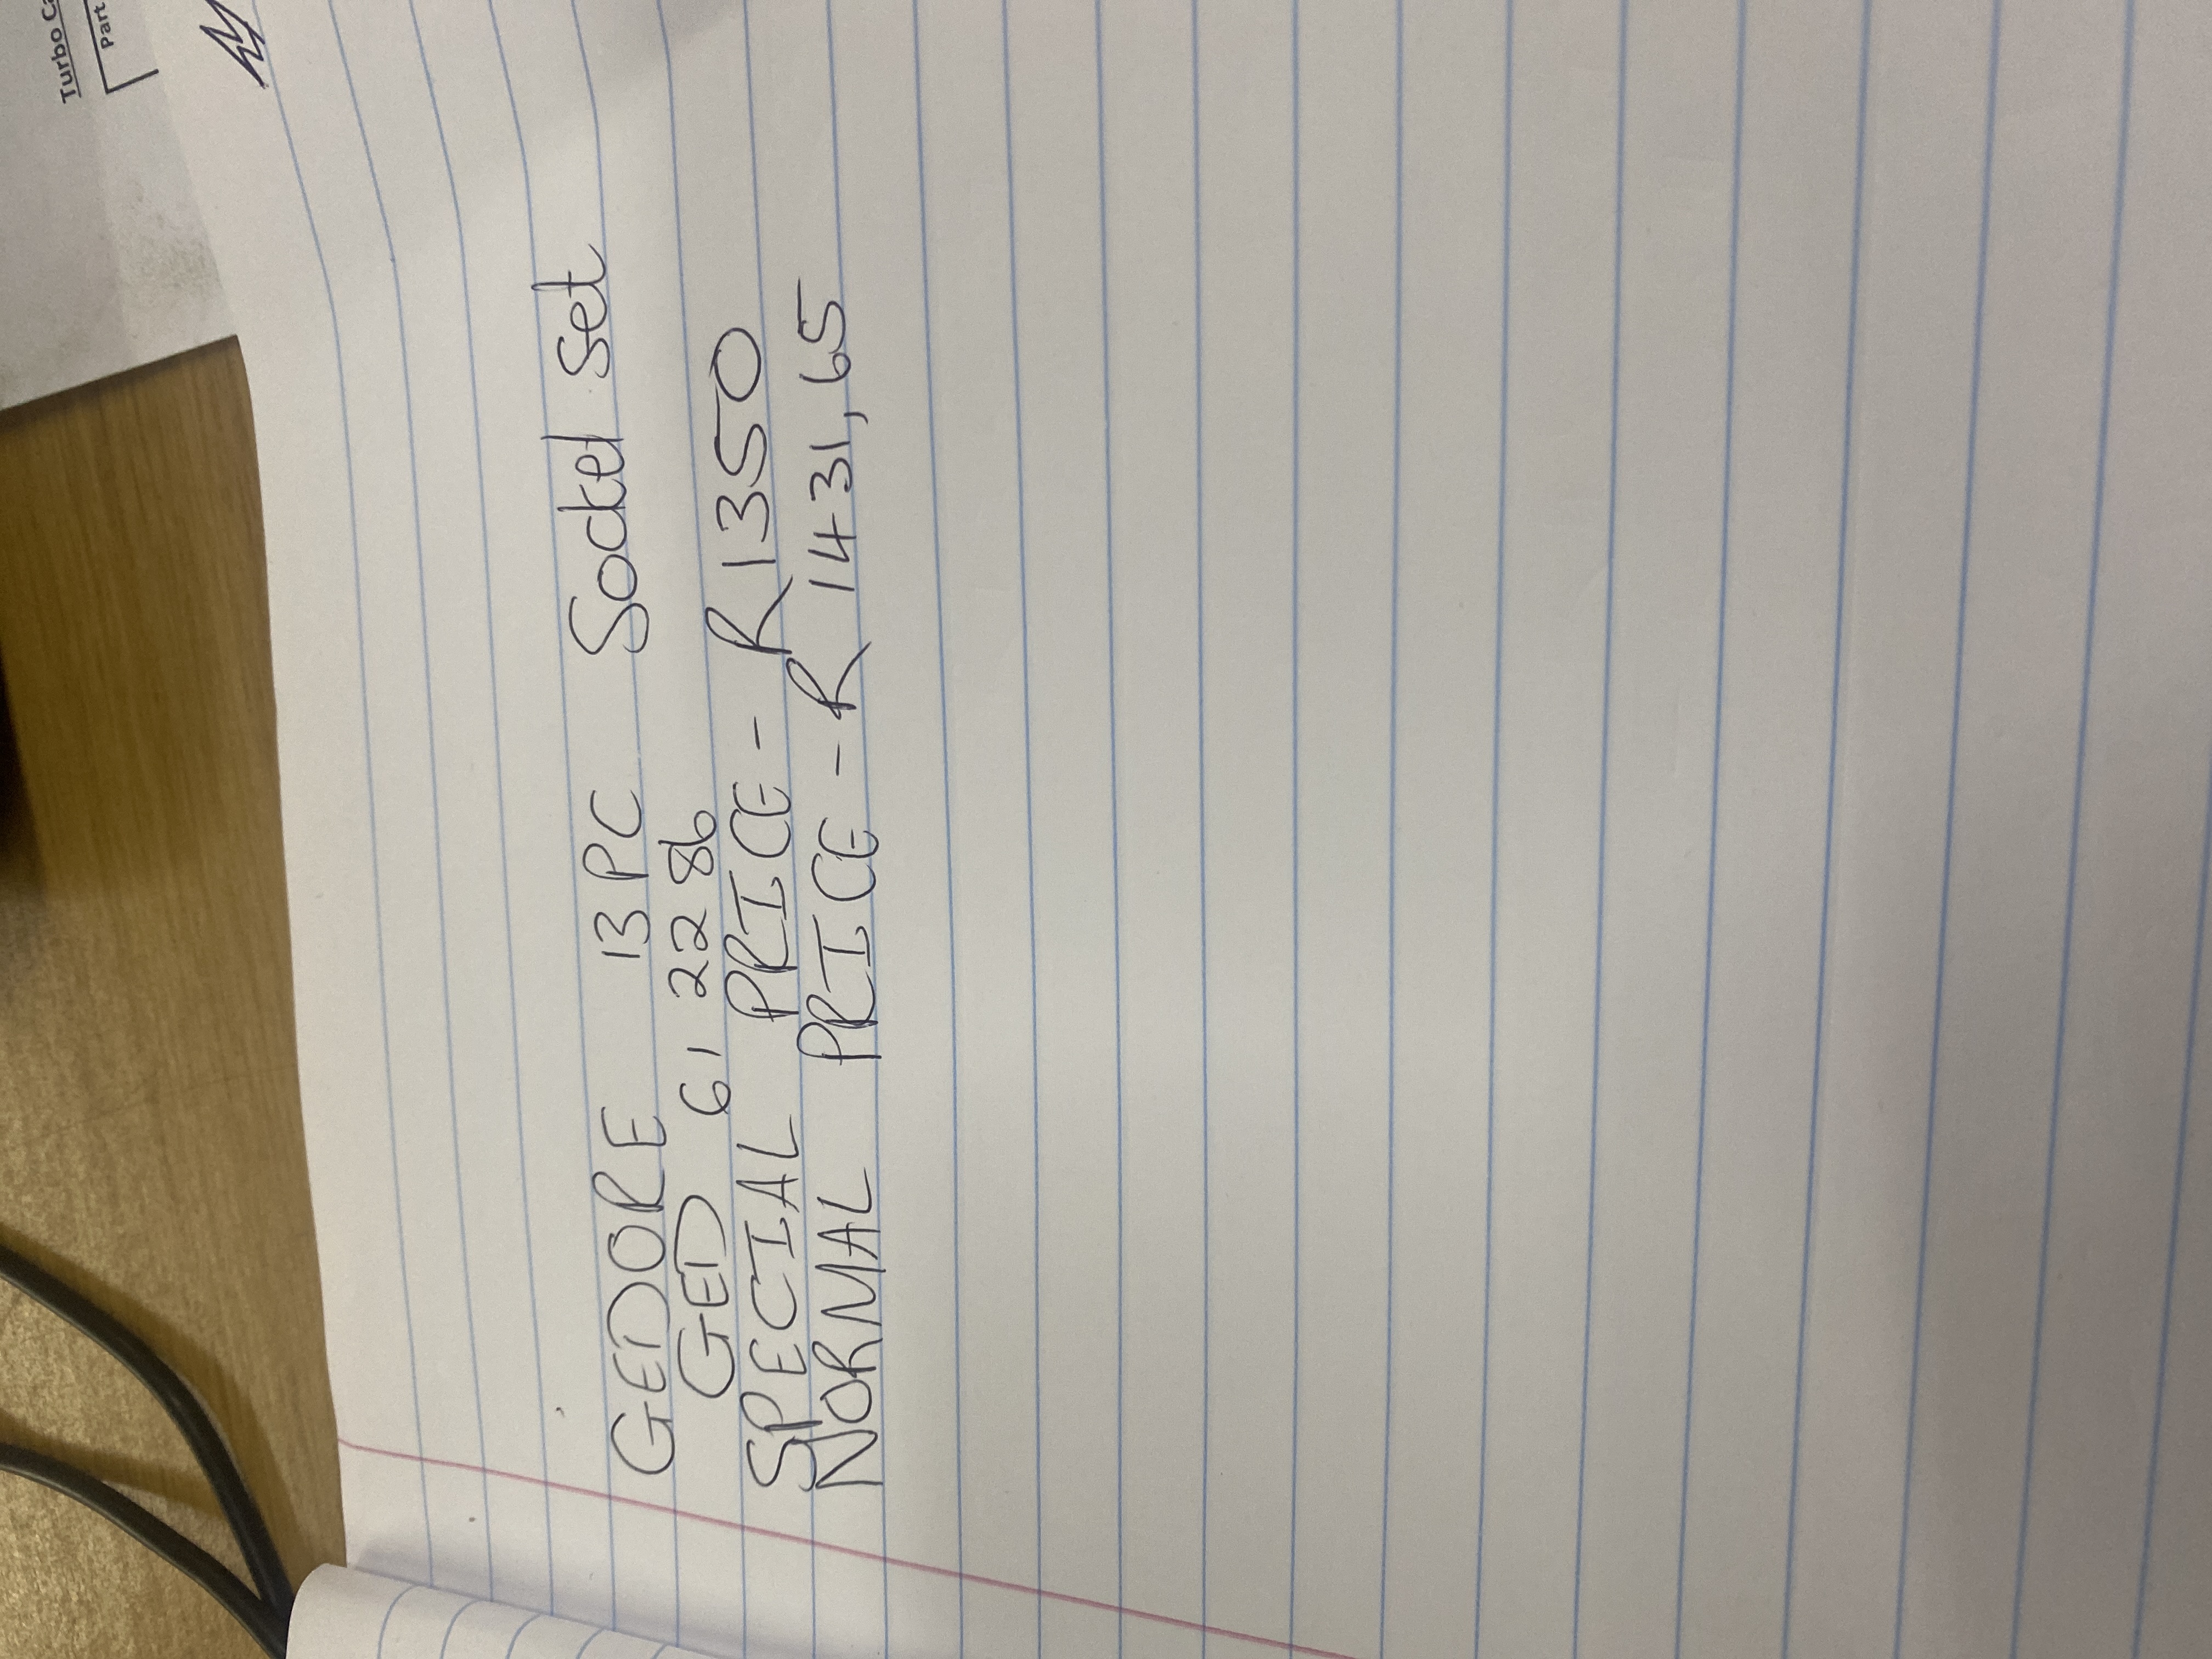 Turbo Ca
Part
GEDORE 13 PC Socket Set
GED 61 22 86
SPECIAL PRICE - R1350
NORMAL PRICE - R 1431,65